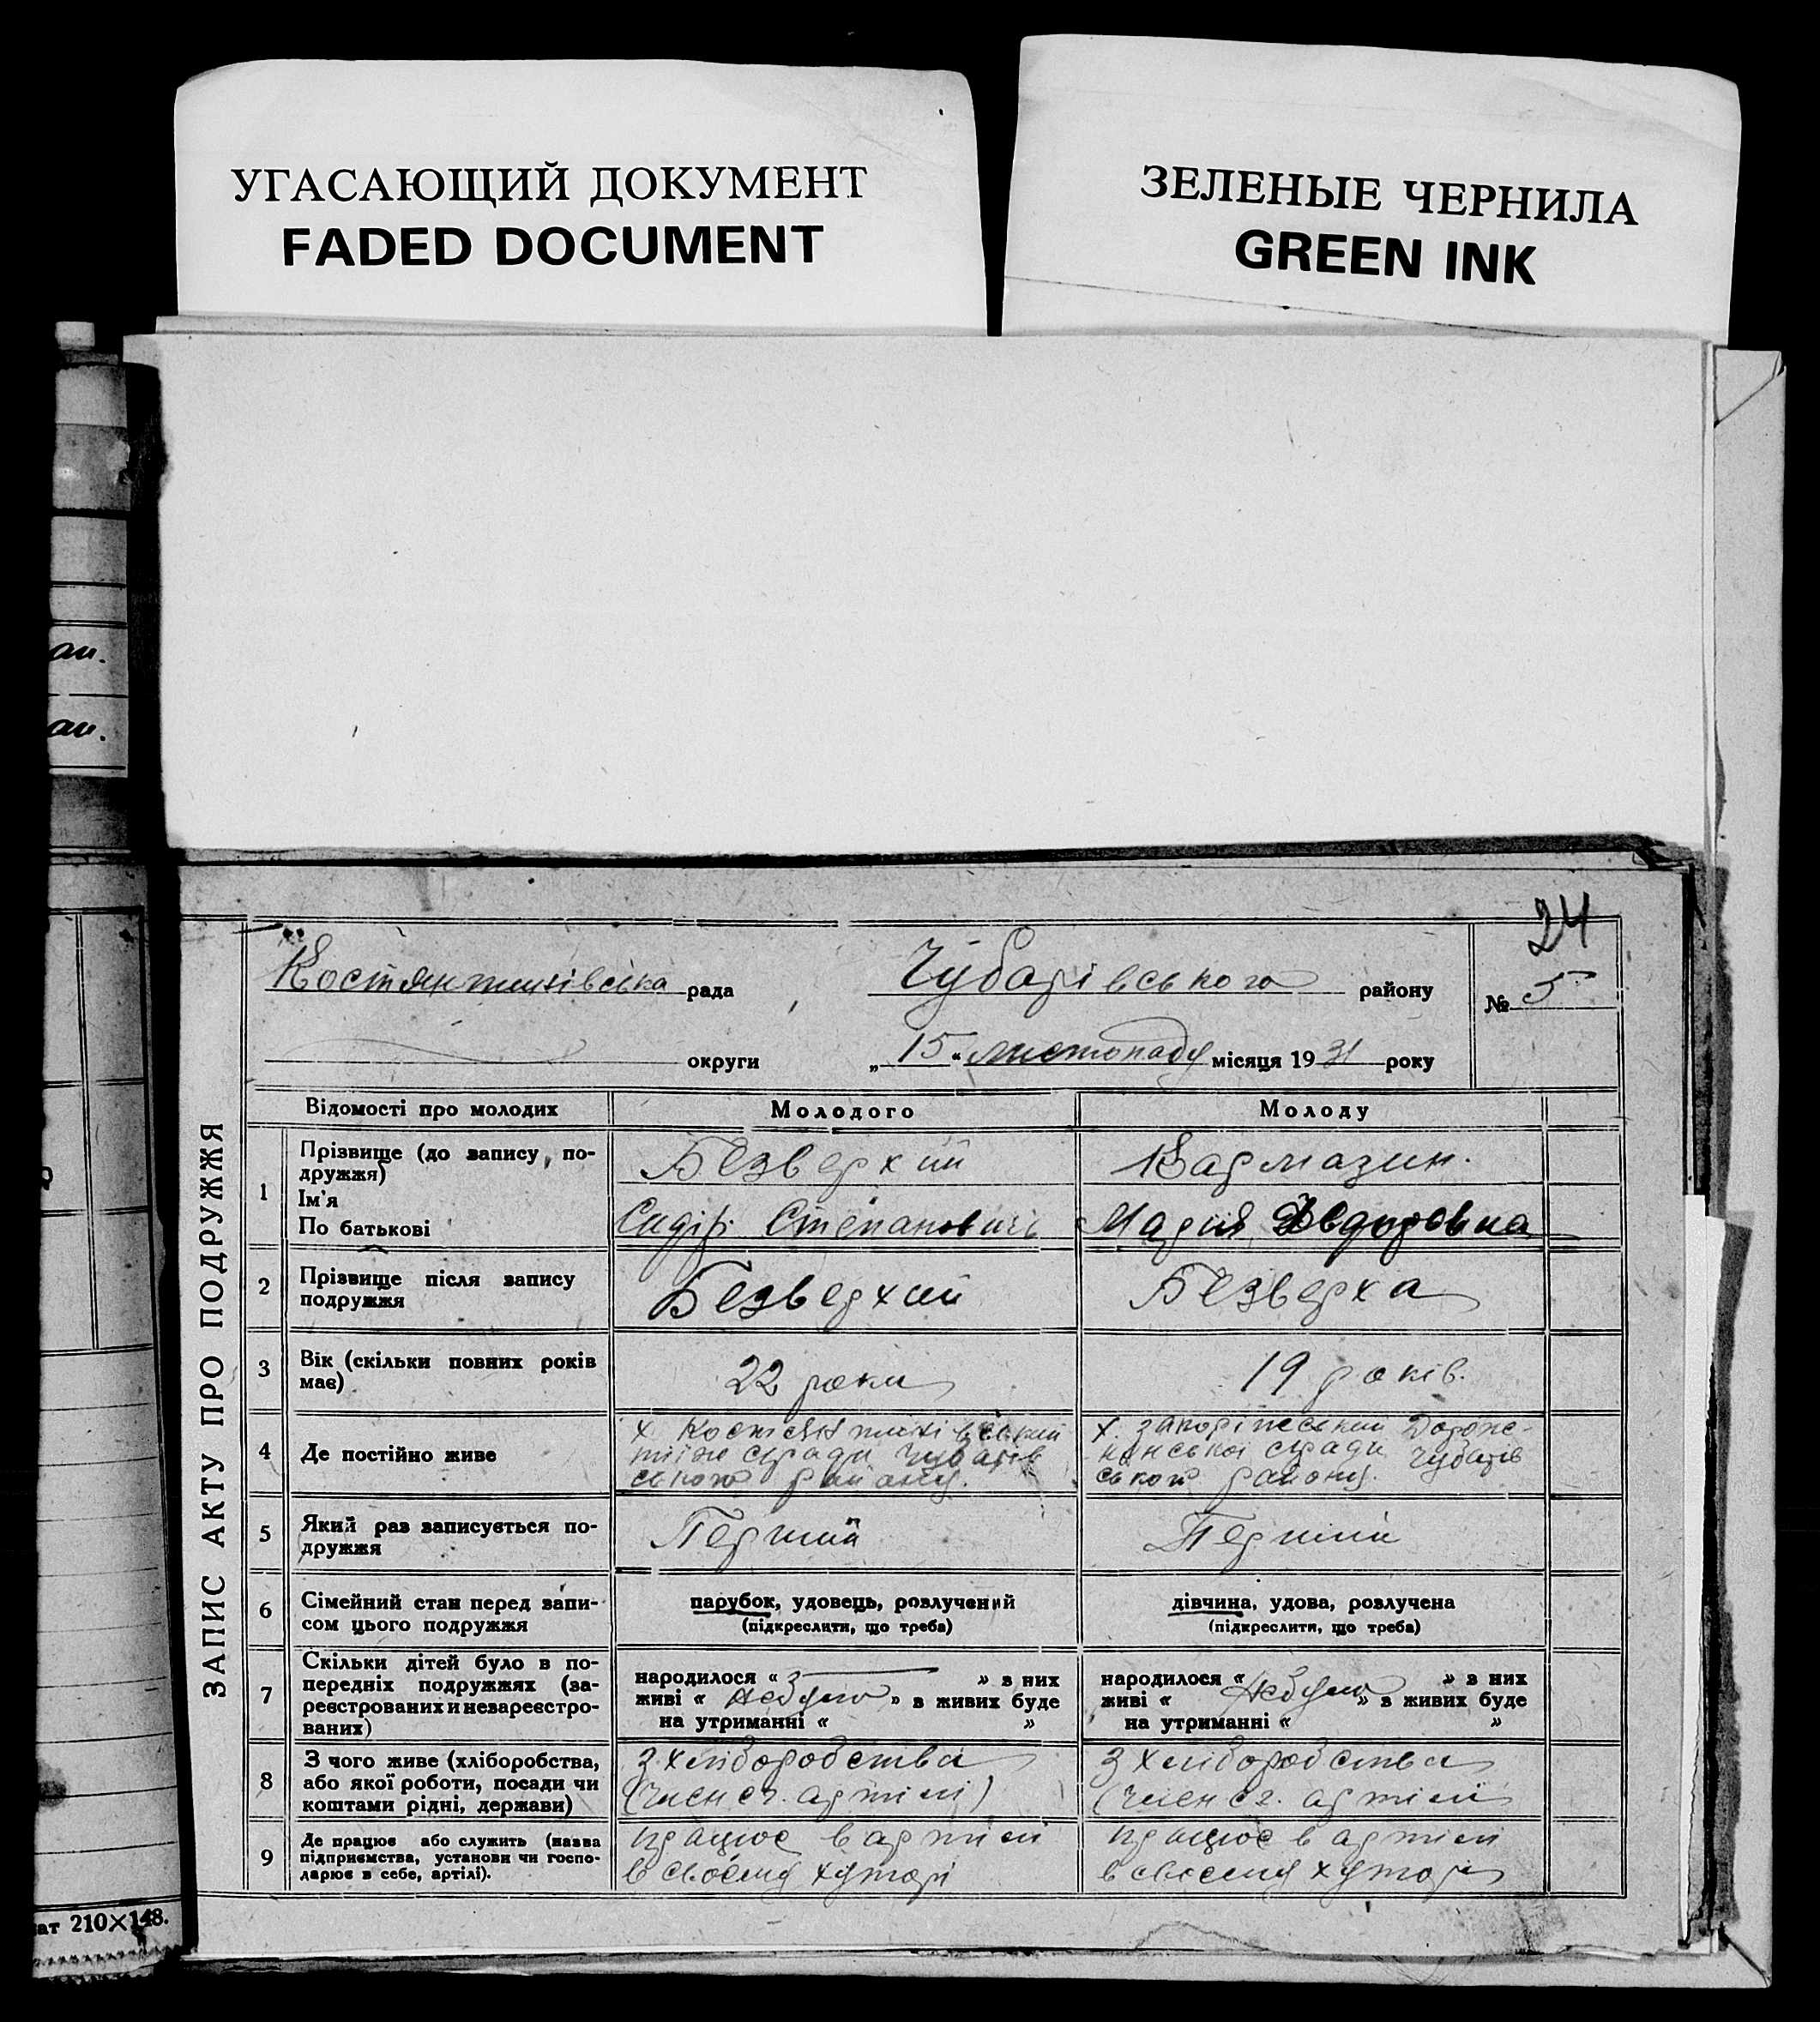 УГАСАЮЩИЙ ДОКУМЕНТ
FADED DOCUMENT
ЗЕЛЕНЫЕ ЧЕРНИЛА
GREEN INK
ан.
ан.
ат 210×148.
24
Костянтинівська рада Чубарівського району № 5
округи „15“ листопада місяця 1931 року
ЗАПИС АКТУ ПРО ПОДРУЖЖЯ
Відомості про молодих Молодого Молоду
1 Прізвище (до запису по-
дружжя)
Ім'я
По батькові
Безверхий
Сидір Степанович
Кармазин.
Марія Федоровна
2 Прізвище після запису
подружжя
Безверхий
Безверха
3 Вік (скільки повних років
має)
22 роки
19 років.
4 Де постійно живе
х. Костянтинівський
тіїж с/ради Чубарів
ського району.
х. Запоріжський
с/ради Чубарів
ського району.
5 Який раз записується по-
дружжя
Перший
Перший
6 Сімейний стан перед запи-
сом цього подружжя
парубок, удовець, розлучений
(підкреслити, що треба)
дівчина, удова, розлучена
(підкреслити, що треба)
7 Скільки дітей було в по-
передніх подружжях (за-
реєстрованих и незареєстро-
ваних)
народилося « » з них
живі « Небуло » в живих буде
на утриманні « »
народилося « » з них
живі « Небуло » в живих буде
на утриманні « »
8 З чого живе (хліборобства,
або якої роботи, посади чи
коштами рідні, держави)
З хліборобства
(член с.г. артілі)
З хліборобства
(член с.г. артілі
9 Де працює або служить (назва
підприємства, установи чи госпо-
дарює в себе, артілі).
працює в артілі
в своєму хуторі
працює в артілі
в своєму хуторі